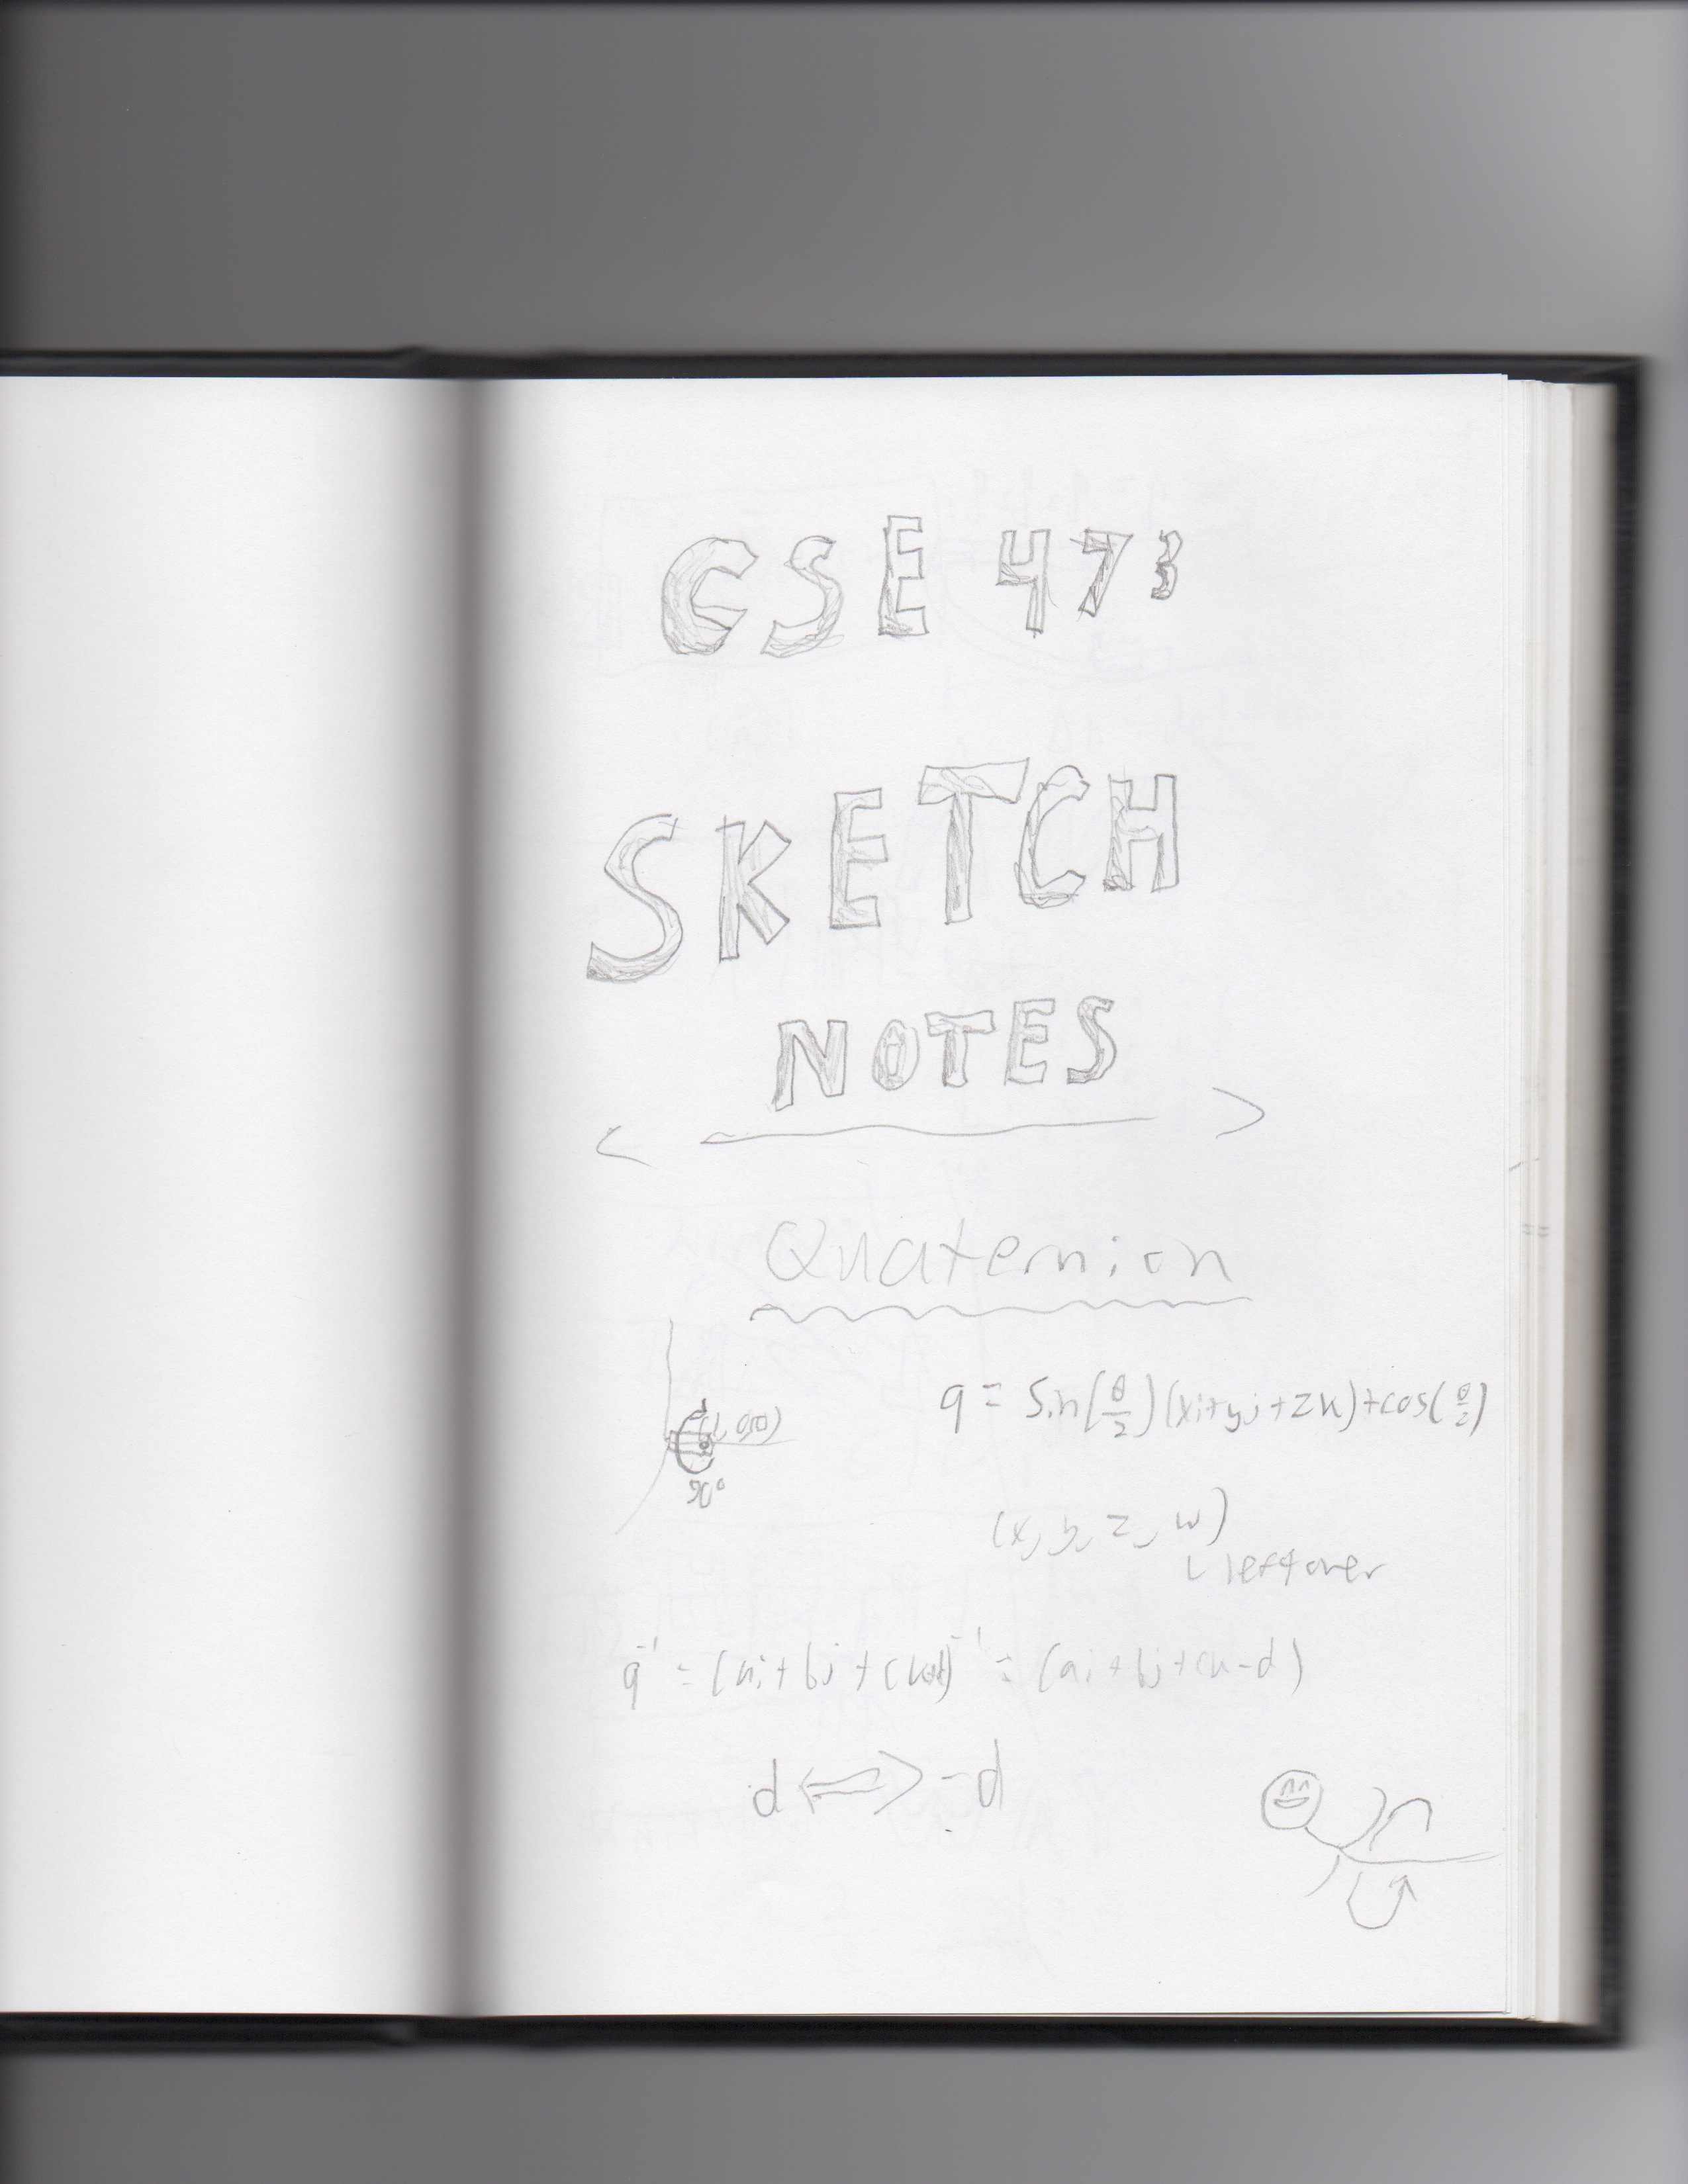 CSE 473
SKETCH
NOTES
Quaternion
q = sin(θ/2)(xi+yj+zk)+cos(θ/2)
90°
(x, y, z, w)
leftover
q⁻¹ = (ai+bj+ck+d)⁻¹ = (ai+bj+ck-d)
d <=> -d